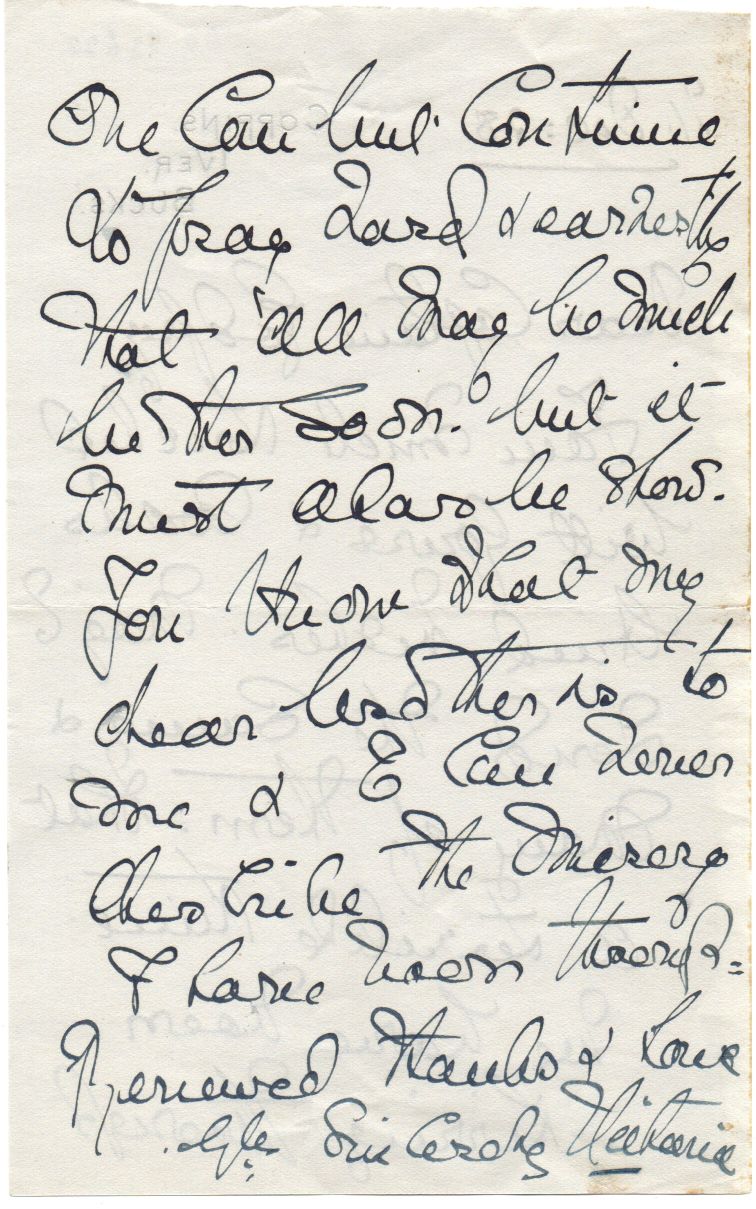 One Can but Continue
to pray hard & earnestly
that all may be much
better soon. but it
must alas be slow.
You know what my
dear brother is to
me & I Can never
describe the misery
I have been through =
Renewed thanks & love
Sincerely Victoria